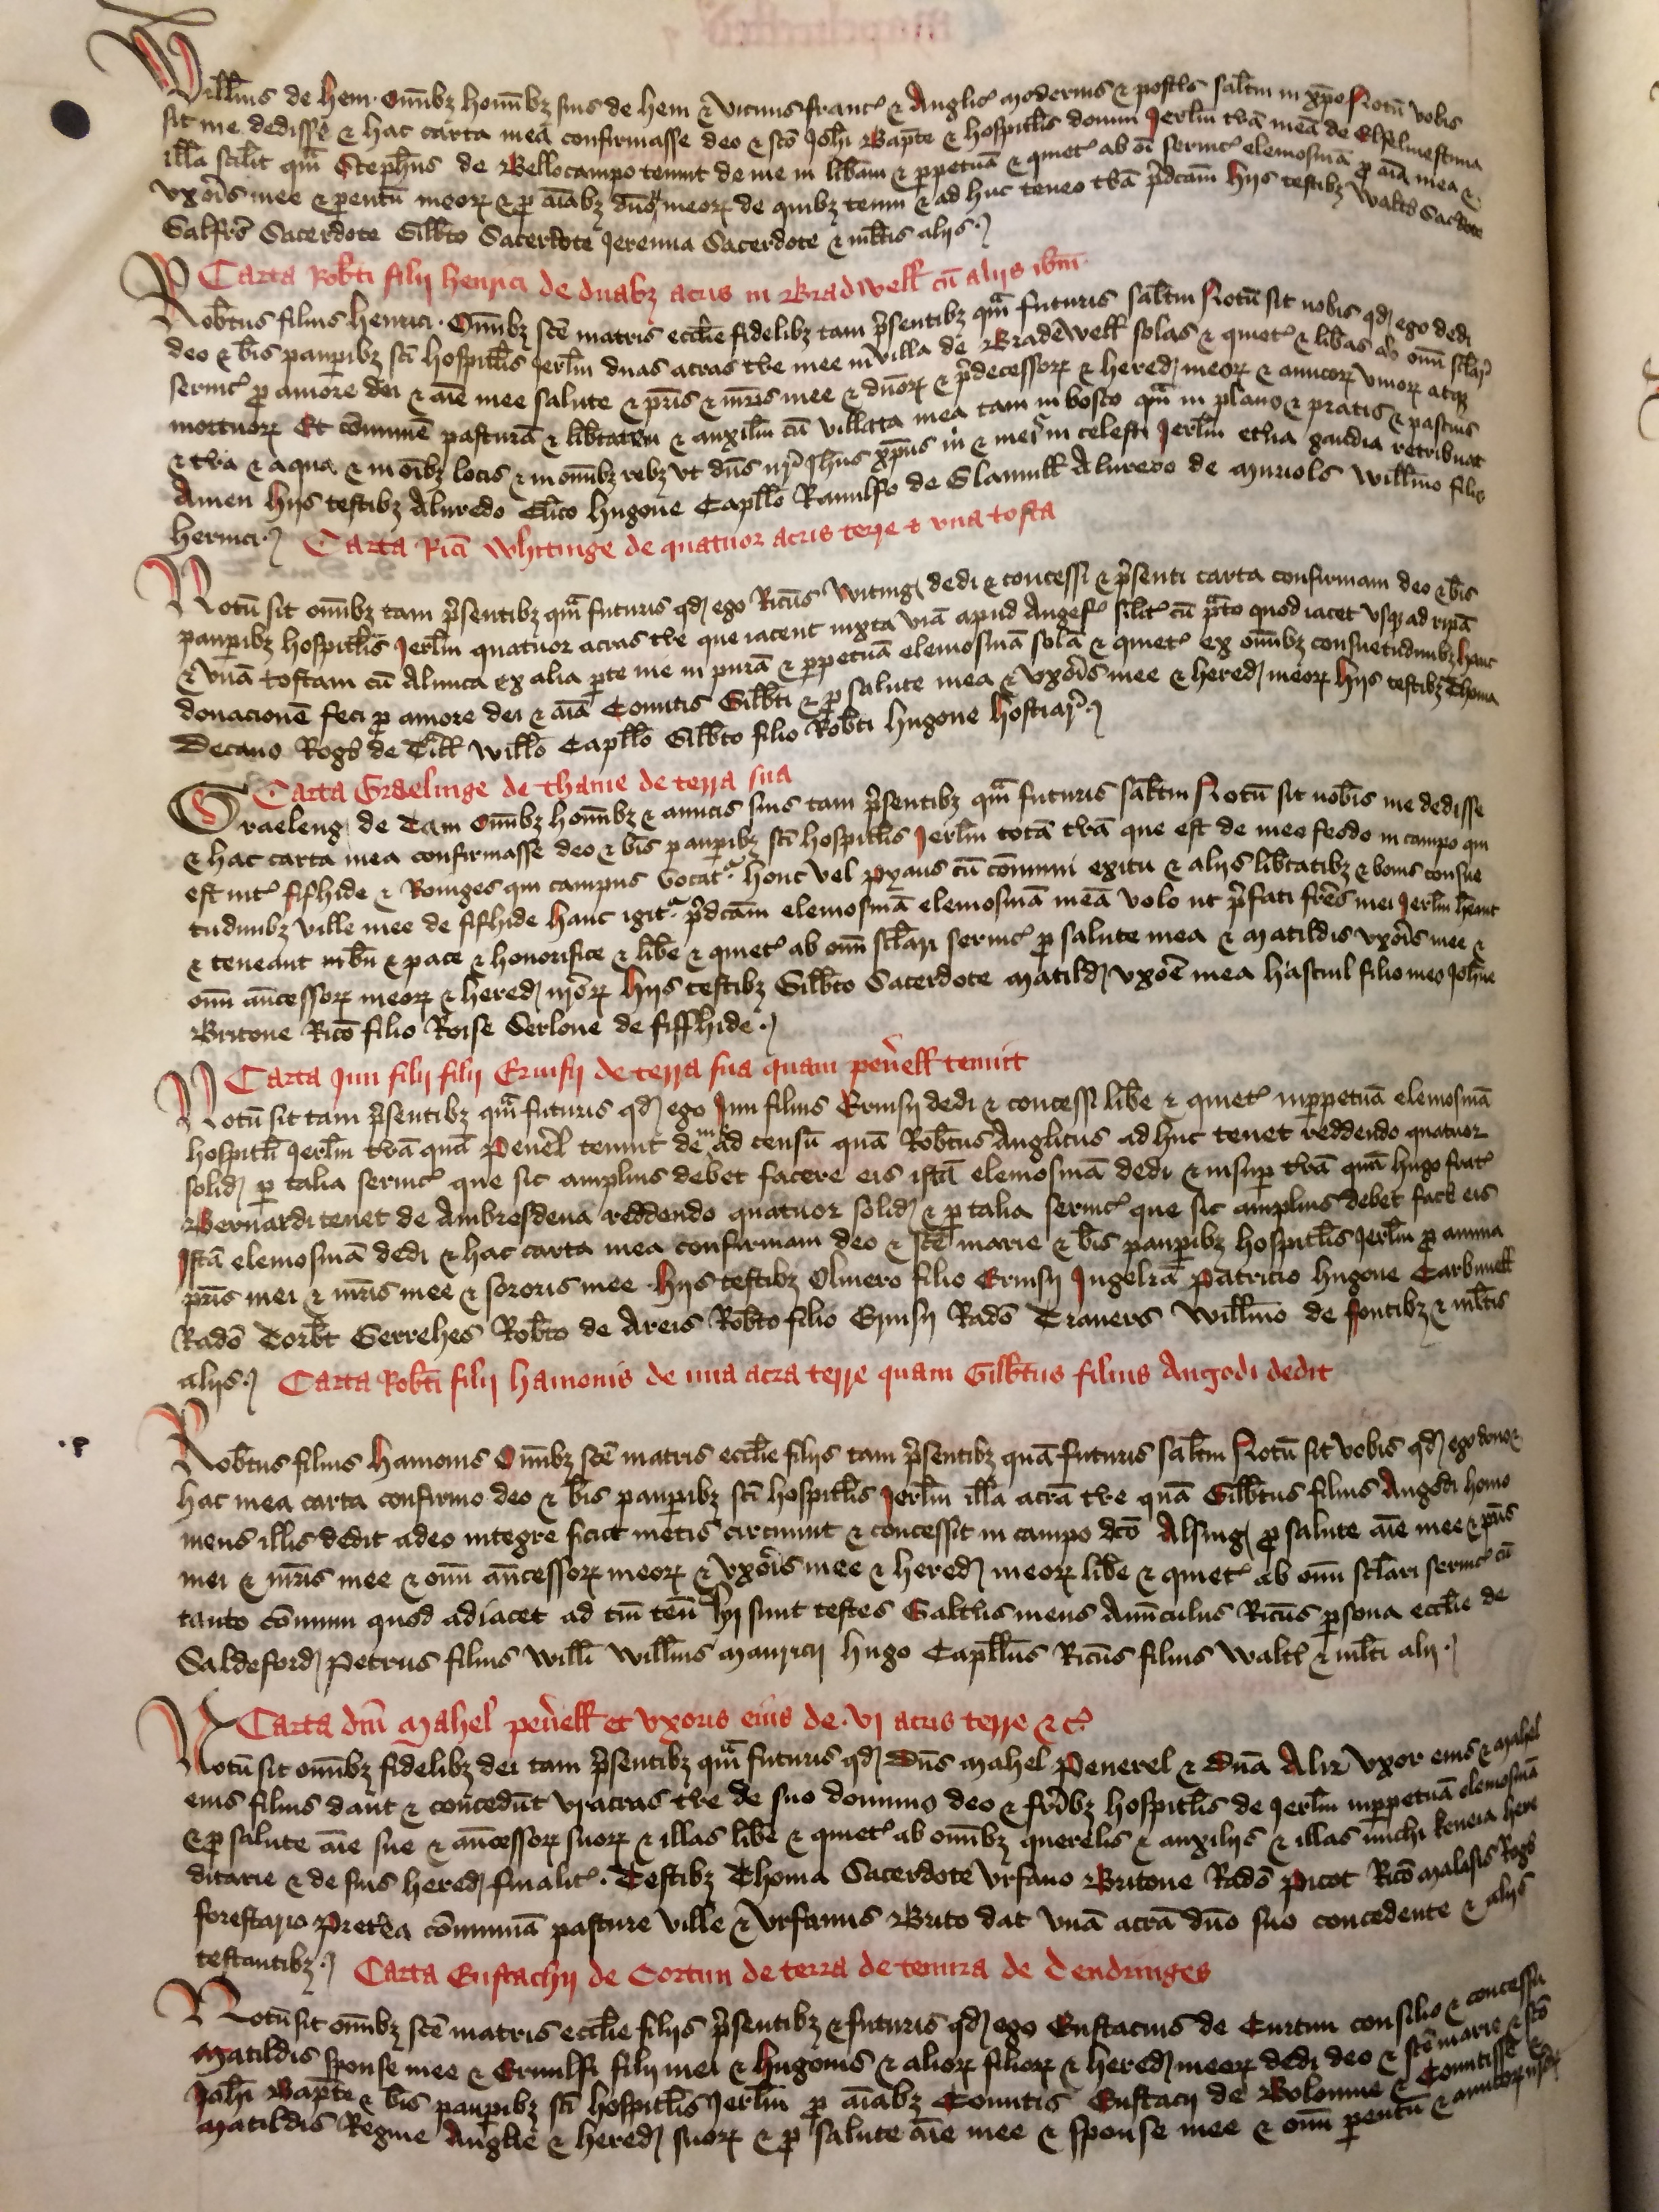 Willm̄s de hem Om̄ibȝ homībȝ suis de hem ⁊ vicinis francꝰ ⁊ Anglicꝰ modernis ⁊ postīs salt̄m in xp̄o Notū vobis
sit me dedisse ⁊ hac carta mea confirmasse deo ⁊ sc̄o Joh̄i Bapt̄e ⁊ hospitłis domui Jerlm̄ t̄rā meā de
illā scilit qm̄ Steph̄us de Bellocampo tenuit de me in lib̄am ⁊ ꝑpetuā ⁊ quietꝰ ab oī seruicꝰ elemosinā ꝓ aīa mea ⁊
vxoīs mee ⁊ ꝑentū meoꝝ ⁊ ꝓ aīabȝ dn̄oꝝ meoꝝ de quibȝ tenui ⁊ ad huc teneo t̄rā p̄dcām hijs testibȝ Walt̄o Sac̄dote
Galfr̄o Sacerdote Gilb̄to Sacerdote Jeremia Sacerdote ⁊ ml̄tis alijs
Carta Rob̄ti filij henrici de duabȝ acris in Bradwełł cū alijs ib̄m
Rob̄tus filius henrici Om̄ibȝ sc̄e matris eccłie fidelibȝ tam p̄sentibȝ qm̄ futuris salt̄m Notū sit uobis qđ ego dedi
deo ⁊ b̄is pauꝑibȝ sc̄i hospitłis Jerlm̄ duas acras t̄re mee in villa de Bradewełł solas ⁊ quietꝰ ⁊ lib̄as ab om̄i scłar̄
seruicꝰ ꝓ amore dei ⁊ aīe mee salute ⁊ pr̄is ⁊ mr̄is mee ⁊ dn̄oꝝ ⁊ p̄decessoꝝ ⁊ hered meoꝝ ⁊ amicoꝝ viuoꝝ atqȝ
mortuoꝝ Et cōmunē pasturā ⁊ lib̄tatem ⁊ auxiliū cū villata mea tam in bosco qm̄ in plano ⁊ pratis ⁊ pasturis
⁊ t̄ra ⁊ aqua ⁊ in oībȝ locis ⁊ in om̄ibȝ rebȝ vt dn̄s nr̄ Jh̄us xp̄us m̄ ⁊ meis in celesti Jerlm̄ et̄na gaudia retribuat
Amen hijs testibȝ Aluredo Cl̄ico hugone Capłło Ranulfo de Glanuiłł Aluredo de Muriols Willm̄o filio
henrici Carta Ric̄i Whitinge de quatuor acris terre ⁊ vna tofta
Notū sit om̄ibȝ tam p̄sentibȝ qm̄ futuris qđ ego Ric̄us Witing dedi ⁊ concessi ⁊ p̄senti carta confirmaui deo ⁊ b̄is
pauꝑibȝ hospitłis Jerlm̄ quatuor acras t̄re que iacent iuxta viā apud silit cū p̄to quod iacet vsqȝ ad ripā
⁊ vnā toftam cū ex alia ꝑte me in purā ⁊ ꝑpetuā elemosinā solā ⁊ quietꝰ ex om̄ibȝ consuetudinibȝ hanc
donacionē feci ꝓ amore dei ⁊ aīa Comitis Gilb̄ti ⁊ ꝓ salute mea ⁊ vxoīs mee ⁊ hered meoꝝ hijs testibȝ Thoma
Decano Roḡo de Willo Capłło Gilb̄to filio Rob̄ti hugone hostiar̄
Carta Graelinge de thame de terra sua
Graeleng de Tam Om̄ibȝ homībȝ ⁊ amicis suis tam p̄sentibȝ qm̄ futuris salt̄m Notū sit uobis me dedisse
⁊ hac carta mea confirmasse deo ⁊ b̄is pauꝑibȝ sc̄i hospitłis Jerlm̄ totā t̄rā que est de meo feodo in campo qui
est int̄ fifhide ⁊ Roinges qui campus vocat̄ honc vel cū cōmuni exitu ⁊ alijs lib̄tatibȝ ⁊ bonis consue
tudinibȝ ville mee de fifhide hanc igit̄ p̄dcām elemosinā elemosinā meā volo ut p̄fati fr̄es mei Jerlm̄ h̄eant
⁊ teneant in b̄n̄ ⁊ pace ⁊ honorifice ⁊ lib̄e ⁊ quietꝰ ab om̄i scłari seruicꝰ ꝓ salute mea ⁊ Matildis vxoīs mee ⁊
om̄i an̄cessoꝝ meoꝝ ⁊ hered meoꝝ hijs testibȝ Gilb̄to Sacerdote Matild vxoē mea filio meo Joh̄ne
Britone Ric̄o filio Roise Serlone de fiffhide
Carta Juin filij filij Ernisij de terra sua quam peūełł tenuit
Notū sit tam p̄sentibȝ qm̄ futuris qđ ego Juin filius Ernisij dedi ⁊ concessi lib̄e ⁊ quietꝰ inꝑpetuā elemosinā
hospitłi Jerlm̄ t̄rā quā Peuerel tenuit de me ad censū quā Rob̄tus Anglicus ad huc tenet reddendo quatuor
solid ꝑ talia seruicꝰ que sic amplius debet facere eis istā elemosinā dedi ⁊ insuꝑ t̄rā quā hugo frat̄
Bernardi tenet de Ambresdena reddendo quatuor solid ⁊ ꝑ talia seruicꝰ que sic amplius debet fac̄e eis
Istā elemosinā dedi ⁊ hac carta mea confirmaui deo ⁊ sc̄e marie ⁊ b̄is pauꝑibȝ hospitłis Jerlm̄ ꝓ anima
pr̄is mei ⁊ mr̄is mee ⁊ sororis mee hijs testibȝ Oliuero filio Ernisij Patricio hugone Carbunełł
Rad̄o Torb̄t Gerrehes Rob̄to de Areis Rob̄to filio Ernisij Rad̄o Trauers Willm̄o de fontibȝ ⁊ ml̄tis
alijs Carta Rob̄ti filij hamonis de vna acra terre quam Gilb̄tus filius Angodi dedit
Rob̄tus filius hamonis Om̄ibȝ sc̄e matris eccłie filijs tam p̄sentibȝ quā futuris salt̄m Notū sit vobis qđ ego dono ⁊
hac mea carta confirmo deo ⁊ b̄is pauꝑibȝ sc̄i hospitłis Jerlm̄ illā acrā t̄re quā Gilb̄tus filius Angodi homo
meus illis dedit adeo integre sicut metis circuiuit ⁊ concessit in campo dc̄o Alsing ꝓ salute aīe mee ⁊ pr̄is
mei ⁊ mr̄is mee ⁊ om̄i an̄cessoꝝ meoꝝ ⁊ vxoīs mee ⁊ hered meoꝝ lib̄e ⁊ quietꝰ ab om̄i scłari seruicꝰ cū
tanto cōmuni quod adiacet ad tm̄ ten̄ hij sunt testes Galt̄us meus Auūculus Ric̄us ꝑsona eccłie de
Saldeford Petrus filius Willi Willm̄s Mauricij hugo Capłłus Ric̄us filius Walt̄i ⁊ ml̄ti alij
Carta dn̄i Mahel peūełł et vxoris eius de vj acris terre ⁊ cꝰ
Notū sit om̄ibȝ fidelibȝ dei tam p̄sentibȝ qm̄ futuris qđ Dn̄s Mahel Peuerel ⁊ Dn̄a Aliz vxor eius ⁊ Mahel
eius filius dant ⁊ concedūt vj acras t̄re de suo dominio deo ⁊ fr̄ibȝ hospitłis de Jerlm̄ inꝑpetuā elemosinā
⁊ ꝓ salute aīe sue ⁊ an̄cessoꝝ suoꝝ ⁊ illas lib̄e ⁊ quietꝰ ab om̄ibȝ querelis ⁊ auxilijs ⁊ illas here
ditarie ⁊ de suis hered finalit̄ Testibȝ Thoma Sacerdote vrsano Britone Rad̄o Picot Ric̄o Malasis Roḡo
forestario Pret̄ea cōmuniā pasture ville ⁊ vrsanus Brito dat vnā acrā dn̄o suo concedente ⁊ alijs
testantibȝ Carta Eustachij de Cortun de terra de tenura de Dendringes
Notū sit om̄ibȝ sc̄e matris eccłie filijs p̄sentibȝ ⁊ futuris qđ ego Eustacius de Curtun consilio ⁊ concessu
Matildis sponse mee ⁊ Ernulfi filij mei ⁊ hugonis ⁊ alioꝝ filioꝝ ⁊ hered meoꝝ dedi deo ⁊ sc̄e marie ⁊ sc̄o
Joh̄i Bapt̄e ⁊ b̄is pauꝑibȝ sc̄i hospitłis Jerlm̄ ꝓ aīabȝ Comitis Eustacij de Bolonie ⁊ Comitisse
Matildis Regine Anglie ⁊ hered suoꝝ ⁊ ꝓ salute aīe mee ⁊ sponse mee ⁊ om̄i ꝑentū ⁊ amicoꝝ